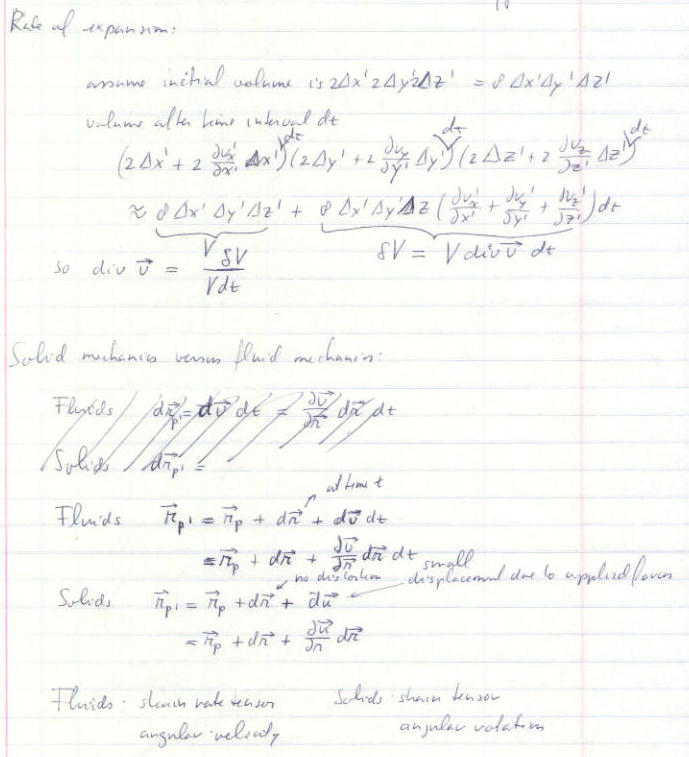 Rate of expansion:
assume initial volume is 2Δx' 2Δy' 2Δz' = 8 Δx'Δy'Δz'
volume after time interval dt
(2Δx' + 2 ∂v'x/∂x' Δx' dt)(2Δy' + 2 ∂vy/∂y' Δy' dt)(2Δz' + 2 ∂vz/∂z' Δz' dt)
≈ 8 Δx' Δy' Δz' + 8 Δx' Δy' Δz (∂v'x/∂x' + ∂v'y/∂y' + ∂v'z/∂z') dt
V δV = V div v⃗ dt
so div v⃗ = δV / V dt
Solid mechanics versus fluid mechanics:
Fluids dr⃗p' = dv⃗ dt = ∂v⃗/∂r⃗ dr⃗ dt
Solids dr⃗p' =
at time t
Fluids r⃗p' = r⃗p + dr⃗ + dv⃗ dt
= r⃗p + dr⃗ + ∂v⃗/∂r⃗ dr⃗ dt
no distortion small displacement due to applied forces
Solids r⃗p' = r⃗p + dr⃗ + du⃗
= r⃗p + dr⃗ + ∂u⃗/∂r dr⃗
Fluids: strain rate tensor Solids: strain tensor
angular velocity angular rotation